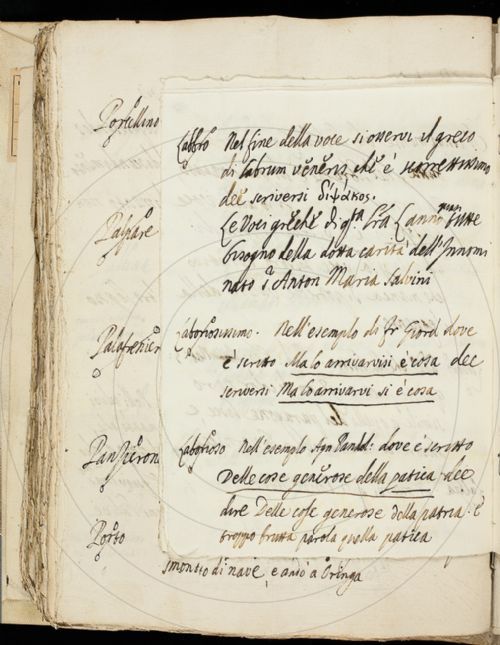 Portellino
Labbro Nel fine della voce si osservi il greco
di labrum veneris che è scorrettissimo
dee scriversi δίψακος.
Palpare
Le voci greche di q.ta lra L anno quasi tutte
bisogno della dotta carità dell'Innomi
nato S Anton Maria Salvini
Palafrenier
Laboriosissimo. Nell'esempio di fr Giord dove
è scritto Malo arrivarvisi è cosa dee
scriversi Malo arrivarvi si è cosa
Panzieron
Laborioso Nell'esempio Agn Pand: dove è scritto
Delle cose generose della patica dee
dire Delle cose generose della patria. è
Porto
troppo brutta parola quella patica
smontto di nave, e andò a Oringa